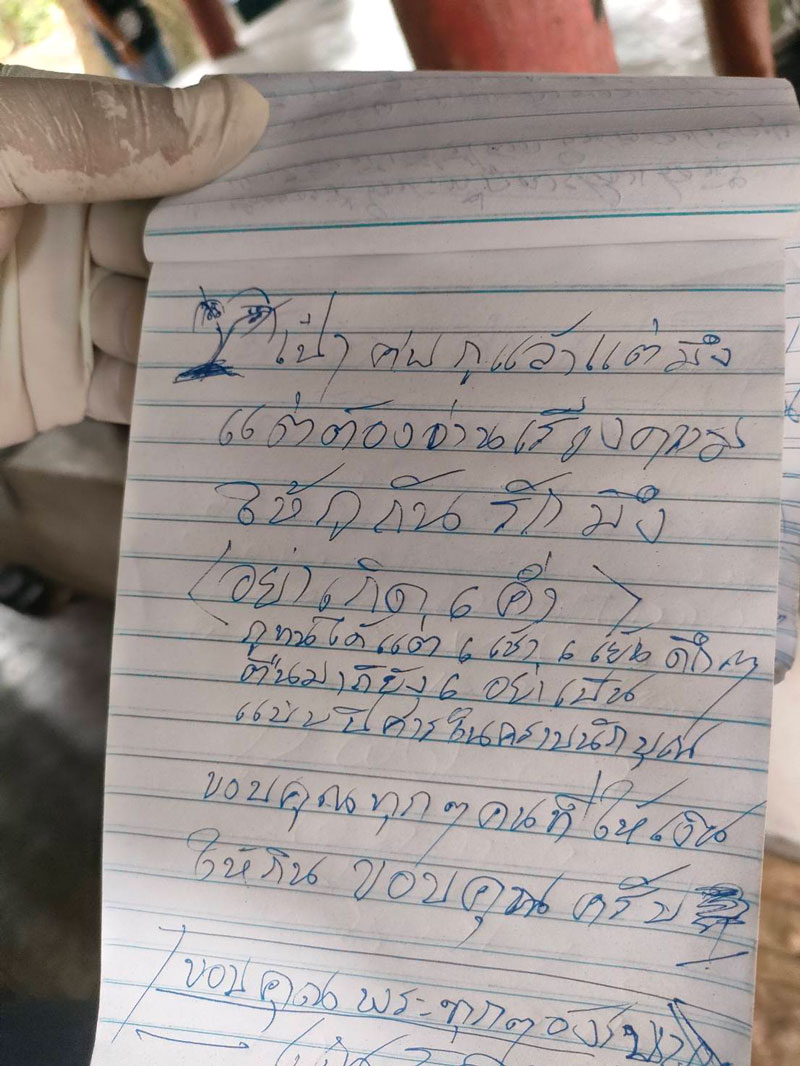 เป่า ศพ กูแล้วแต่ มึง
แต่ต้องอ่านเรียงความ
ให้กูกัน รัก มึง
(อย่าเกิด 6 คึ่ง)
กูทนได้แต่ 6 เช้า 6 เย็น ดึกๆ
ตื่นมาก็ยัง 6 อย่าเป็น
แบบปีศาจในคราบนักบุญ
ขอบคุณทุกๆคนที่ให้เงิน
ให้กิน ขอบคุณ ครับ
ขอบคุณ พระทุกๆองค์